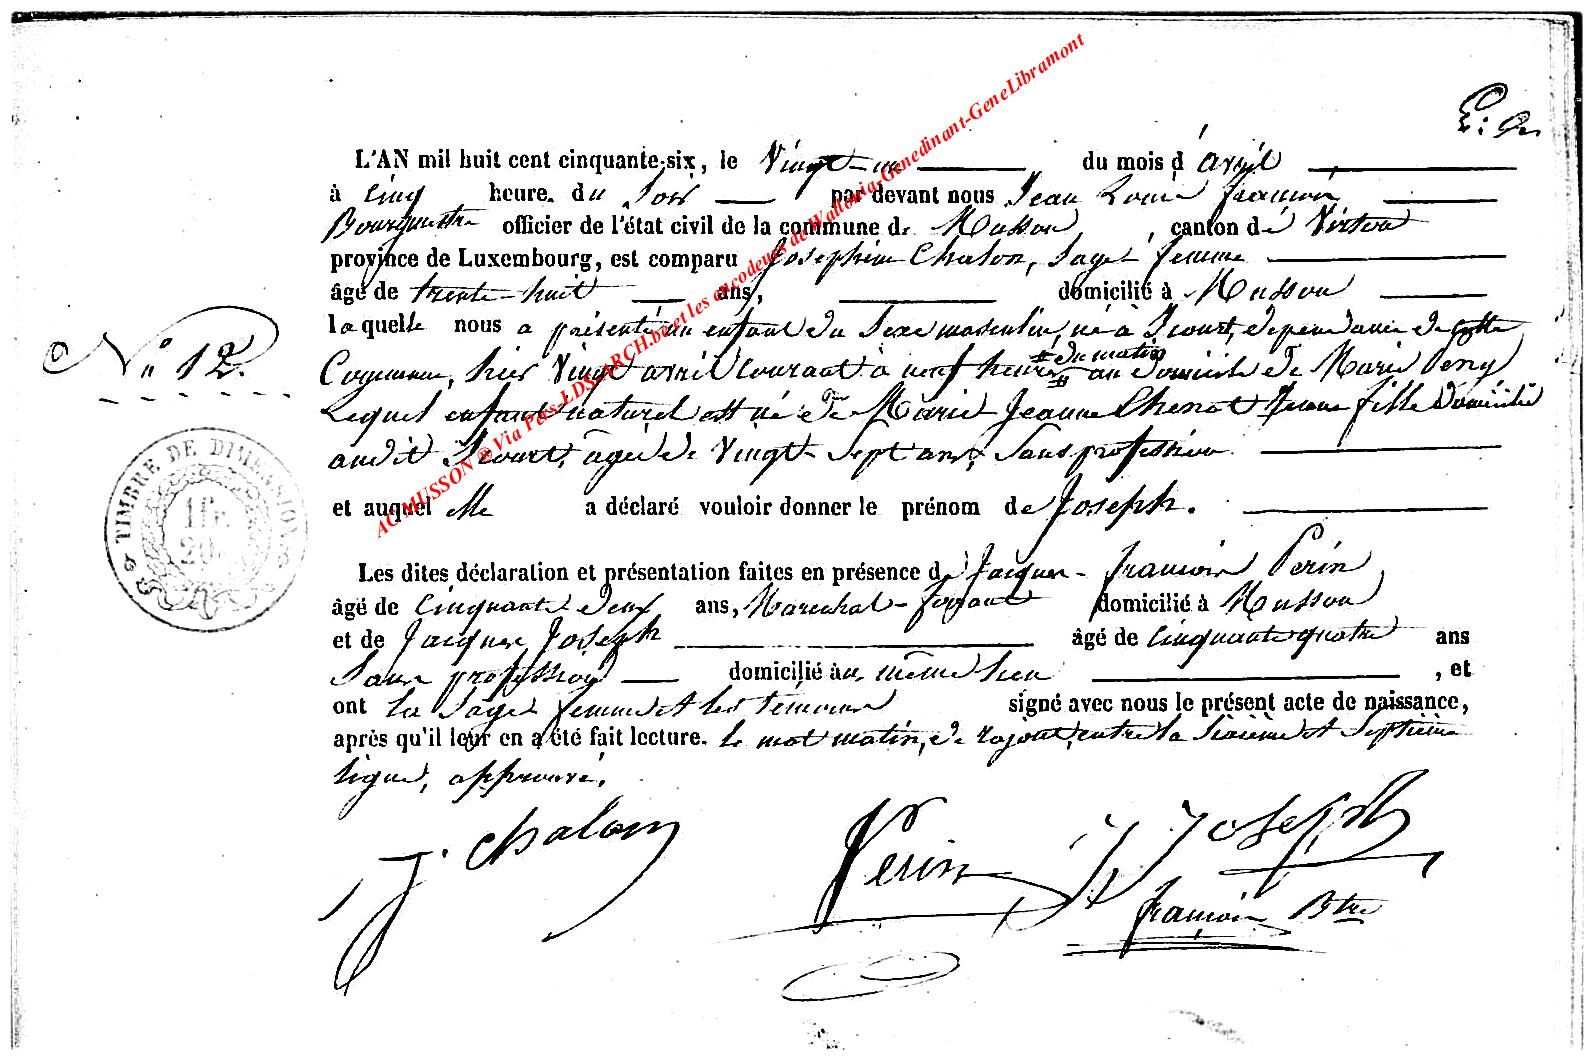 L'AN mil huit cent cinquante-six, le Vingt-un du mois d'avril
à Cinq heure. du Soir par devant nous Jean Louis François
Bourgmestre officier de l'état civil de la commune de Musson, canton de Virton
province de Luxembourg, est comparu Josephine Chalon, Sage femme
âgé de trente-huit ans, domicilié à Musson
laquelle nous a présenté un enfant du Sexe masculin, né à Icourt, dépendance de cette
N° 12.
Commune, hier Vingt avril Courant à neuf heures du matin au domicile de Marie
Lequel enfant naturel est né de Marie Jeanne Chenot Jeune fille Domiciliée
audit Icourt, âgée de Vingt Sept ans, Sans profession
TIMBRE DE DIMENSION
1 fr. 20
et auquel elle a déclaré vouloir donner le prénom de Joseph.
Les dites déclaration et présentation faites en présence de Jacques-François Perin
âgé de Cinquante deux ans, Marechal-ferrant domicilié à Musson
et de Jacques Joseph âgé de Cinquante quatre ans
Sans profession domicilié au même lieu, et
ont la Sage femme et les temoins signé avec nous le présent acte de naissance,
après qu'il leur en a été fait lecture. le mot matin, de rajout, entre la Sixième et Septième
ligne, approuvé.
J. Chalon
Perin
J Joseph
François Btre
AC MUSSON ® Via Pers-LDS-ARCH.be et les encodeurs de Wallonia-Genedinant-GeneLibramont